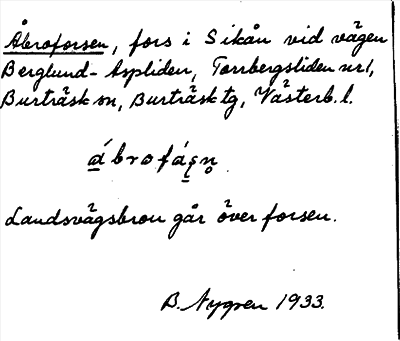 Åbroforsen, fors i Sikån vid vägen
Berglund-Aspliden, Torrbergsliden nr 1,
Burträsk sn, Burträsk tg, Västerb. l.
ábrofásn̥
Landsvägsbron går över forsen.
B. Nygren 1933.